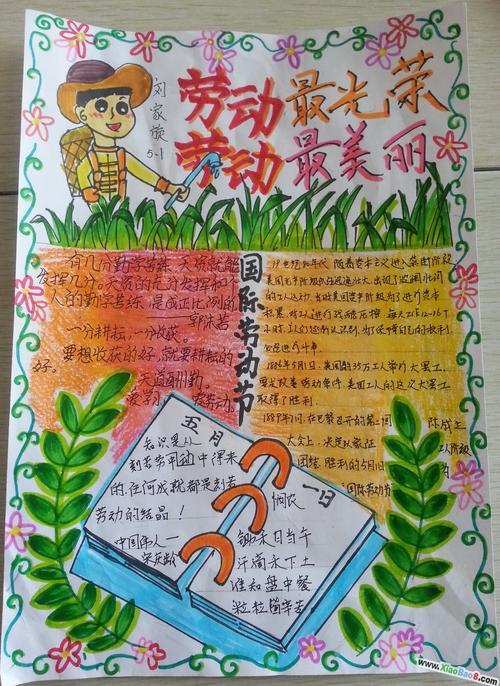 劳动最光荣
劳动最美丽
刘家旋
5.1
国际劳动节
有几分勤学苦练,天资就能
发挥几分。天资的充分发挥和个
人的勤学苦练,是成正比例的。
郭沫若
一分耕耘,一分收获。
要想收获的好,就要耕耘的
好。
天道酬勤。
爱劳动
19世纪80年代,随着资本主义进入
美国无产阶级
的工人运动。当时美国资产阶级为了进行资本
积累,对工人进行残酷压榨,每天工作12-16个
小时,
必须进行斗争。
1886年5月1日,美国35万工人举行大罢工,
要求改善劳动条件,美国工人的这次大罢工
取得了胜利。
1889年7月,在巴黎召开的第二国
大会上,决定以象征
工人阶级
团结、胜利的5月1日为
国际劳动节
五月
知识是从
刻苦劳动中得来
的,任何成就都是刻苦
劳动的结晶!
中国伟人—
宋庆龄
一日
悯农
锄禾日当午
汗滴禾下土
谁知盘中餐
粒粒皆辛苦
www.XiaoBao8.com